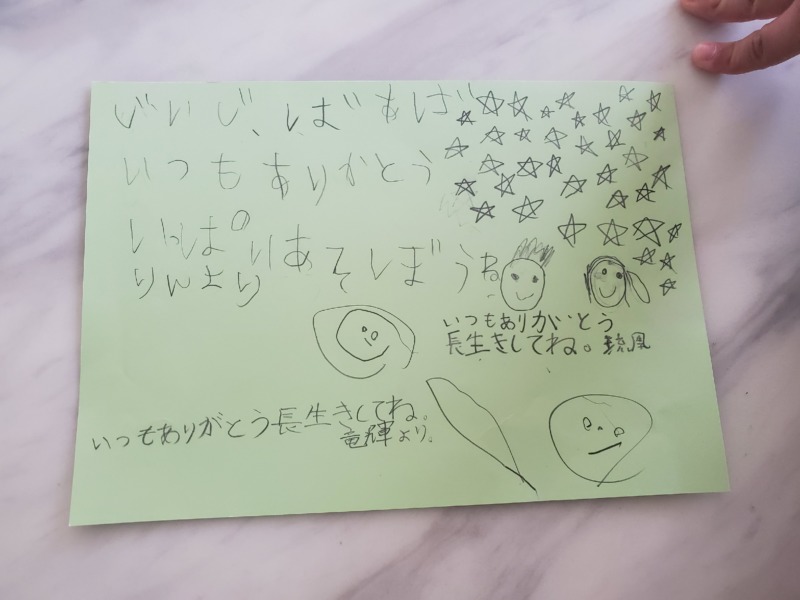 じいじ、ばあば
いつもありかとう
いっぱいあそぼうね
りんより
いつもありがとう
長生きしてね。
いつもありがとう長生きしてね。
竜輝より。